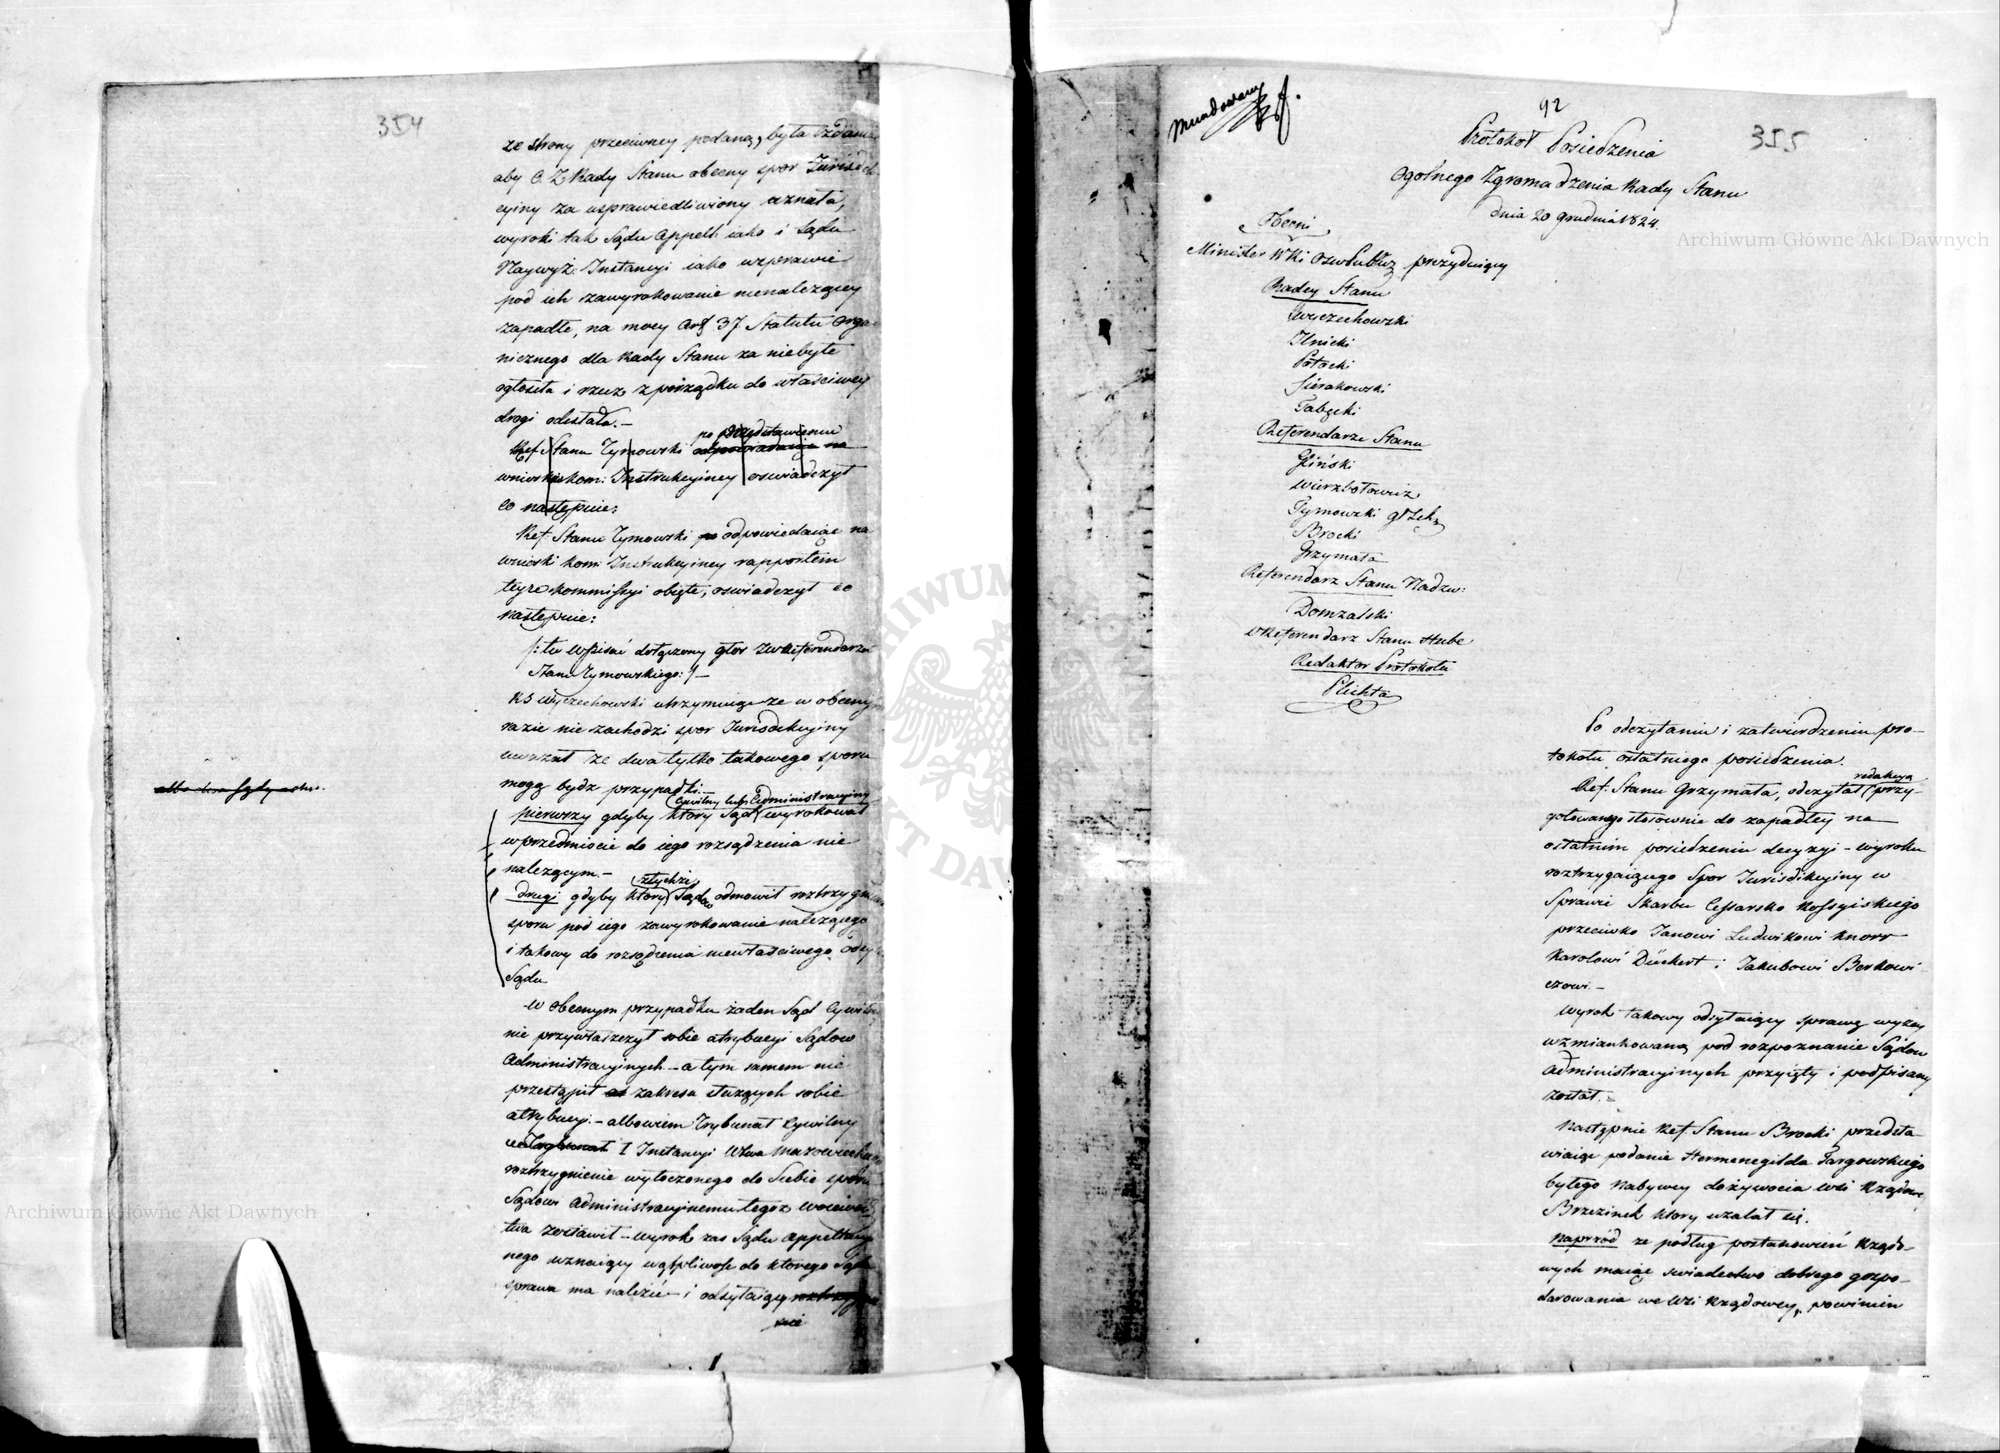 354
ze strony przeciwney podaną, była żdania
aby O. Z Rady Stanu obecny spor Jurisdik
cyiny za usprawiedliwiony uznała,
wyroki tak Sądu Appell: iako i Sądu
Naywyż: Instancyi iako wsprawie
pod ich zawyrokowanie nienależącey
zapadłe, na mocy Art 37 Statutu Orga
nicznego dla Rady Stanu za niebyłe
ogłosiła i rzecz z porządku do właściwey
drogi odesłała.—
po przedstawieniu
Ref Stanu Tymowski odpowiadaiąc na
wnioski kom: Instrukcyiney oswiadczył
co następuie:
Ref: Stanu Tymowski po odpowiadaiąc na
wnioski kom: Instrukcyiney rapportem
teyże kommissyi obięte, oswiadczył co
następuie:
/: tu wpisać dołączony głos JW Referendarza
Stanu Tymowskiego :/ —
RS Wyczechowski utrzymuiąc że w obecnym
razie nie zachodzi spor Jurisdikcyiny
uważał że dwa tylko takowego sporu
mogą bydz przypadki.—
Cywilny lub Administracyiny
pierwszy gdyby który Sąd wyrokował
albo dwa Sądy
wprzedmiocie do iego rozsądzenia nie
należącym.—
z tychże
drugi gdyby który Sądow odmowił roztrzygnienia
sporu pod iego zawyrokowanie należącego
i takowy do rozsądzenia niewłaściwego
Sądu
W obecnym przypadku żaden Sąd Cywilny
nie przywłaszczył sobie atrybucyi Sądow
Administracyinych – a tym samem nie
przestąpił zakresu służących sobie
atrybucyi.– albowiem Trybunał Cywilny
I Instancyi Wdwa Mazowieckiego
roztrzygnienie wytoczonego do Siebie sporu
Sądowi Administracyinemu tegoż wojewodz
twa zostawił – wyrok zas Sądu Appellacyi
nego uznaiący wątpliwość do którego Sądu
sprawa ma należeć – i odsyłaiący
nie
Mundowany
92
355
Protokoł Posiedzenia
Ogolnego Zgromadzenia Rady Stanu
dnia 20 Grudnia 1824.
Obecni
Minister WRi Oswi Publicz prezyduiący
Radcy Stanu
Wyczechowski
Ilnicki
Potocki
Sierakowski
Tabęcki
Referendarze Stanu
Gliński
Wierzbołowicz
Tymowski
Brocki
Grzymała
Referendarz Stanu Nadzw:
Domżalski
W Referendarz Stanu Hube
Redaktor Protokołu
Plichta
Po odczytaniu i zatwierdzeniu pro-
tokołu ostatniego posiedzenia.
redakcyą
Ref: Stanu Grzymała, odczytał przy-
gotowanego stosownie do zapadłey na
ostatnim posiedzeniu decyzyi – wyroku
roztrzygaiącego Spor Jurisdikcyiny w
Sprawie Skarbu Cessarsko Rossyiskiego
przeciwko Janowi Ludwikowi Knorr
Karolowi Dückert i Jakubowi Berkowi-
czowi.—
Wyrok takowy odsyłaiący sprawę wyżey
wzmiankowaną pod rozpoznanie Sądow
Administracyinych przyięty i podpisany
został.—
Następnie Ref: Stanu Brocki przedsta
wiaiąc podanie Hermenegilda Targowskiego
byłego Nabywcy dożywocia wsi Rządow:
Brzezinek który użalał się.
Naprzód że podług postanowień Rządo-
wych maiąc swiadectwo dobrego gospo-
darowania we wsi Rządowey, powinien
Archiwum Główne Akt Dawnych
Archiwum Główne Akt Dawnych